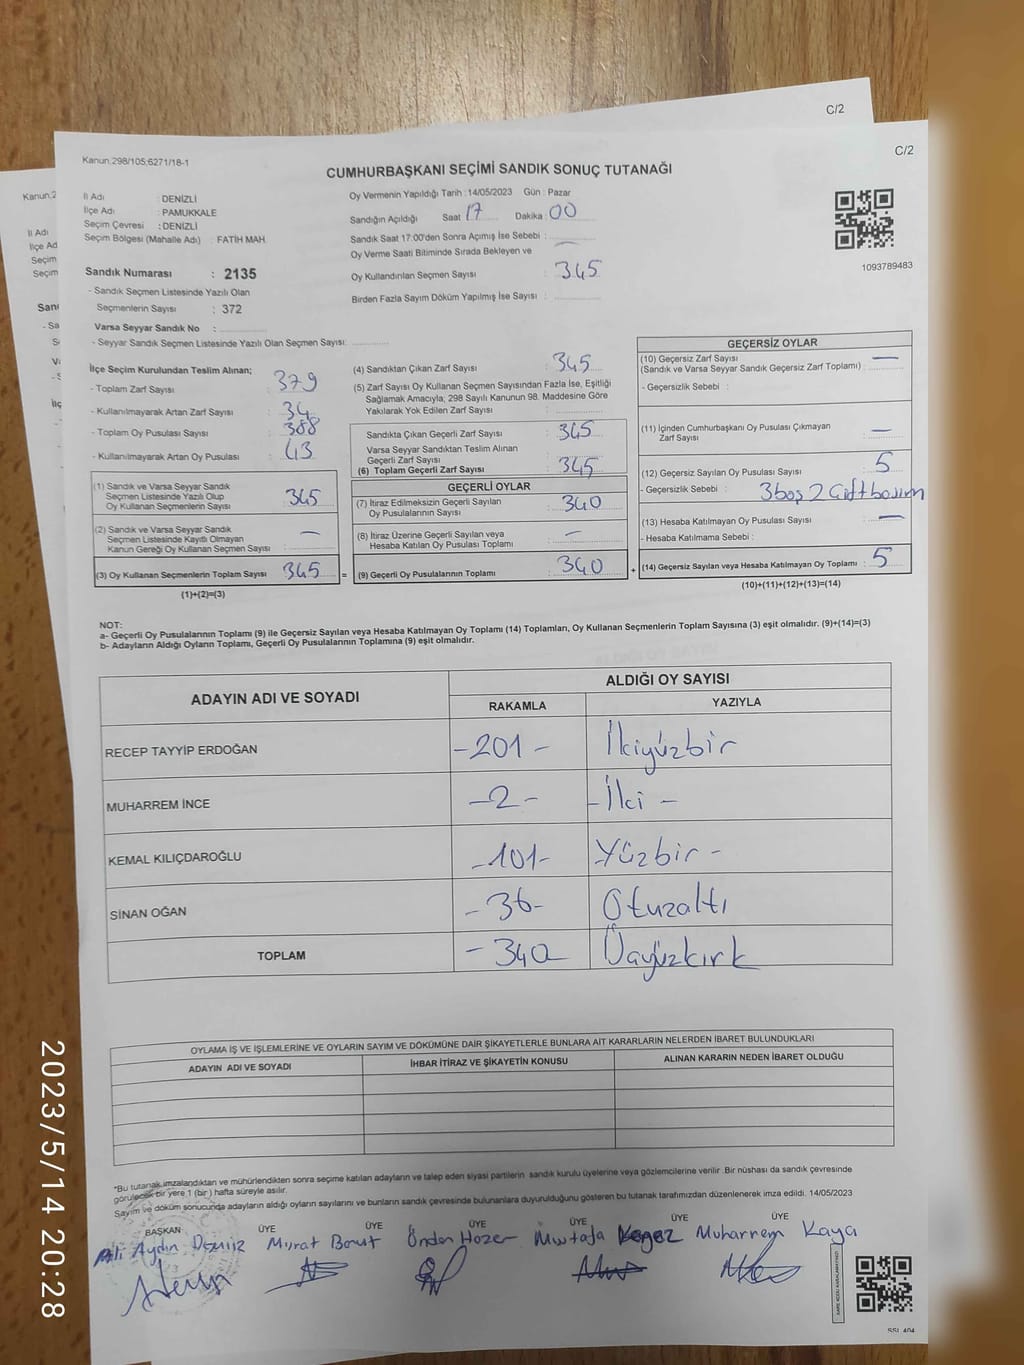 C/2
Kanun.298/105;6271/18-1
C/2
CUMHURBAŞKANI SEÇİMİ SANDIK SONUÇ TUTANAĞI
İl Adı : DENİZLİ
İlçe Adı : PAMUKKALE
Seçim Çevresi : DENİZLİ
Seçim Bölgesi (Mahalle Adı) : FATİH MAH.
Sandık Numarası : 2135
- Sandık Seçmen Listesinde Yazılı Olan
Seçmenlerin Sayısı : 372
Varsa Seyyar Sandık No :
- Seyyar Sandık Seçmen Listesinde Yazılı Olan Seçmen Sayısı:
Oy Vermenin Yapıldığı Tarih : 14/05/2023 Gün : Pazar
Sandığın Açıldığı Saat 17 Dakika : 00
Sandık Saat 17:00'den Sonra Açımış İse Sebebi :
Oy Verme Saati Bitiminde Sırada Bekleyen ve
Oy Kullandırılan Seçmen Sayısı : 345
Birden Fazla Sayım Döküm Yapılmış İse Sayısı :
1093789483
İlçe Seçim Kurulundan Teslim Alınan;
- Toplam Zarf Sayısı : 379
- Kullanılmayarak Artan Zarf Sayısı : 34
- Toplam Oy Pusulası Sayısı : 388
- Kullanılmayarak Artan Oy Pusulası : 43
(1) Sandık ve Varsa Seyyar Sandık
Seçmen Listesinde Yazılı Olup
Oy Kullanan Seçmenlerin Sayısı : 345
(2) Sandık ve Varsa Seyyar Sandık
Seçmen Listesinde Kayıtlı Olmayan
Kanun Gereği Oy Kullanan Seçmen Sayısı : —
(3) Oy Kullanan Seçmenlerin Toplam Sayısı : 345 =
(1)+(2)=(3)
(4) Sandıktan Çıkan Zarf Sayısı : 345
(5) Zarf Sayısı Oy Kullanan Seçmen Sayısından Fazla İse, Eşitliği
Sağlamak Amacıyla; 298 Sayılı Kanunun 98. Maddesine Göre
Yakılarak Yok Edilen Zarf Sayısı :
Sandıkta Çıkan Geçerli Zarf Sayısı : 345
Varsa Seyyar Sandıktan Teslim Alınan
Geçerli Zarf Sayısı :
(6) Toplam Geçerli Zarf Sayısı : 345
GEÇERLİ OYLAR
(7) İtiraz Edilmeksizin Geçerli Sayılan
Oy Pusulalarının Sayısı : 340
(8) İtiraz Üzerine Geçerli Sayılan veya
Hesaba Katılan Oy Pusulası Toplamı : —
(9) Geçerli Oy Pusulalarının Toplamı : 340 +
GEÇERSİZ OYLAR
(10) Geçersiz Zarf Sayısı
(Sandık ve Varsa Seyyar Sandık Geçersiz Zarf Toplamı) : —
- Geçersizlik Sebebi :
(11) İçinden Cumhurbaşkanı Oy Pusulası Çıkmayan
Zarf Sayısı : —
(12) Geçersiz Sayılan Oy Pusulası Sayısı : 5
- Geçersizlik Sebebi : 3 boş 2 Çift basım
(13) Hesaba Katılmayan Oy Pusulası Sayısı : —
- Hesaba Katılmama Sebebi :
(14) Geçersiz Sayılan veya Hesaba Katılmayan Oy Toplamı : 5
(10)+(11)+(12)+(13)=(14)
NOT:
a- Geçerli Oy Pusulalarının Toplamı (9) ile Geçersiz Sayılan veya Hesaba Katılmayan Oy Toplamı (14) Toplamları, Oy Kullanan Seçmenlerin Toplam Sayısına (3) eşit olmalıdır. (9)+(14)=(3)
b- Adayların Aldığı Oyların Toplamı, Geçerli Oy Pusulalarının Toplamına (9) eşit olmalıdır.
ADAYIN ADI VE SOYADI
ALDIĞI OY SAYISI
RAKAMLA YAZIYLA
RECEP TAYYİP ERDOĞAN -201- İkiyüzbir
MUHARREM İNCE -2- -İki-
KEMAL KILIÇDAROĞLU -101- Yüzbir-
SİNAN OĞAN -36- Otuzaltı
TOPLAM -340 Üçyüzkırk
OYLAMA İŞ VE İŞLEMLERİNE VE OYLARIN SAYIM VE DÖKÜMÜNE DAİR ŞİKAYETLERLE BUNLARA AİT KARARLARIN NELERDEN İBARET BULUNDUKLARI
ADAYIN ADI VE SOYADI İHBAR İTİRAZ VE ŞİKAYETİN KONUSU ALINAN KARARIN NEDEN İBARET OLDUĞU
*Bu tutanak imzalandıktan ve mühürlendikten sonra seçime katılan adayların ve talep eden siyasi partilerin sandık kurulu üyelerine veya gözlemcilerine verilir. Bir nüshası da sandık çevresinde
görülecek bir yere 1 (bir) hafta süreyle asılır.
Sayım ve döküm sonucunda adayların aldığı oyların sayılarını ve bunların sandık çevresinde bulunanlara duyurulduğunu gösteren bu tutanak tarafımızdan düzenlenerek imza edildi. 14/05/2023
BAŞKAN ÜYE ÜYE ÜYE ÜYE ÜYE ÜYE
Ali Aydın Murat Bout Önder Hozer Mustafa Muharrem Kaya
2023/5/14 20:28